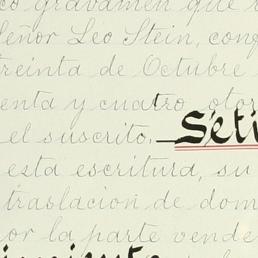 co gravamen que
Señor Leo Stein, con
treinta de Octubre
enta y cuatro, otor
el suscrito.— Séti
esta escritura, su
traslacion de dom
or la parte vende